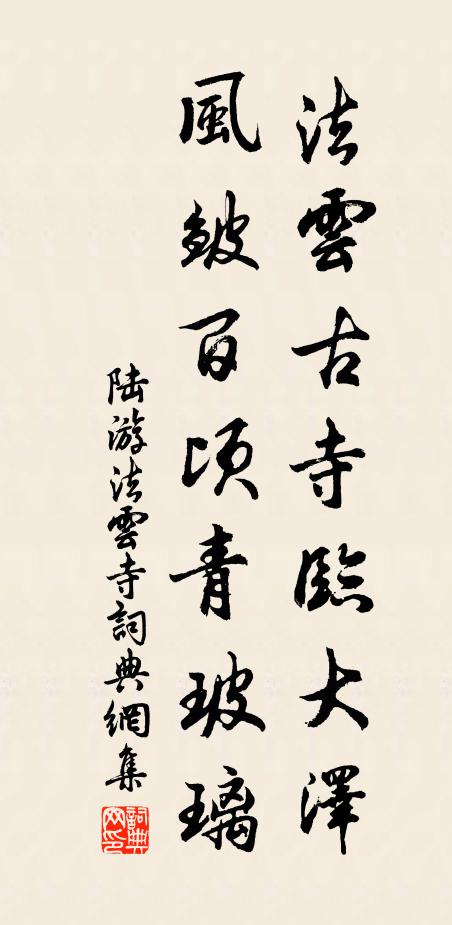 法雲古寺臨大澤
風皴百頃青玻璃
陸游法雲寺詞典網集
詞典網印